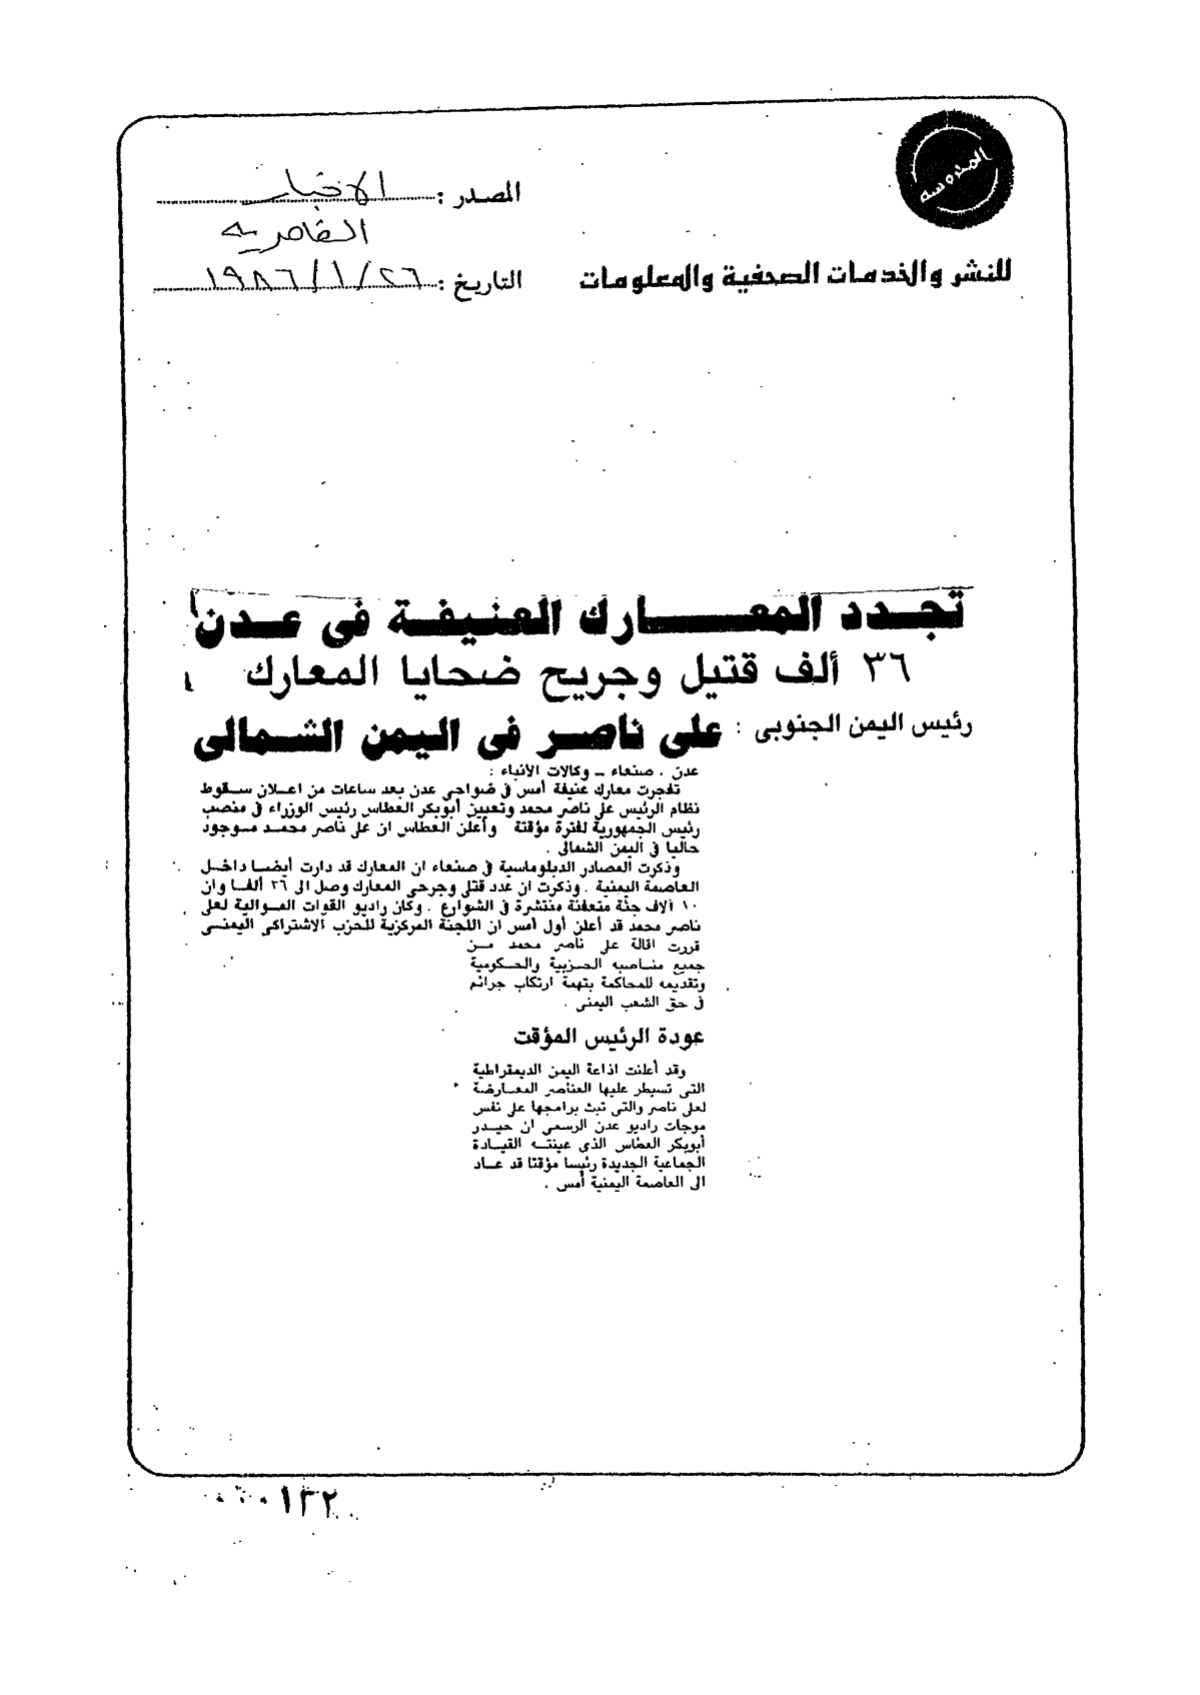 المحروسة
للنشر والخدمات الصحفية والمعلومات
المصدر : الاخبار
القاهرية
التاريخ : ٢٦/١/١٩٨٦
تجدد المعارك العنيفة فى عدن
٣٦ ألف قتيل وجريح ضحايا المعارك
رئيس اليمن الجنوبى : على ناصر فى اليمن الشمالى
عدن . صنعاء ــ وكالات الأنباء :
تفجرت معارك عنيفة أمس فى ضواحى عدن بعد ساعات من اعلان سقوط
نظام الرئيس على ناصر محمد وتعيين أبوبكر العطاس رئيس الوزراء فى منصب
رئيس الجمهورية لفترة مؤقتة وأعلن العطاس ان على ناصر محمد موجود
حاليا فى اليمن الشمالى .
وذكرت المصادر الدبلوماسية فى صنعاء ان المعارك قد دارت أيضا داخل
العاصمة اليمنية . وذكرت ان عدد قتلى وجرحى المعارك وصل الى ٣٦ ألفا وان
١٠ آلاف جثة متعفنة منتشرة فى الشوارع . وكان راديو القوات الموالية لعلى
ناصر محمد قد أعلن أول أمس ان اللجنة المركزية للحزب الاشتراكى اليمنى
قررت اقالة على ناصر محمد من
جميع مناصبه الحزبية والحكومية
وتقديمه للمحاكمة بتهمة ارتكاب جرائم
فى حق الشعب اليمنى .
عودة الرئيس المؤقت
وقد أعلنت اذاعة اليمن الديمقراطية
التى تسيطر عليها العناصر المعارضة
لعلى ناصر والتى تبث برامجها على نفس
موجات راديو عدن الرسمى ان حيدر
أبوبكر العطاس الذى عينته القيادة
الجماعية الجديدة رئيسا مؤقتا قد عاد
الى العاصمة اليمنية أمس .
١٣٢